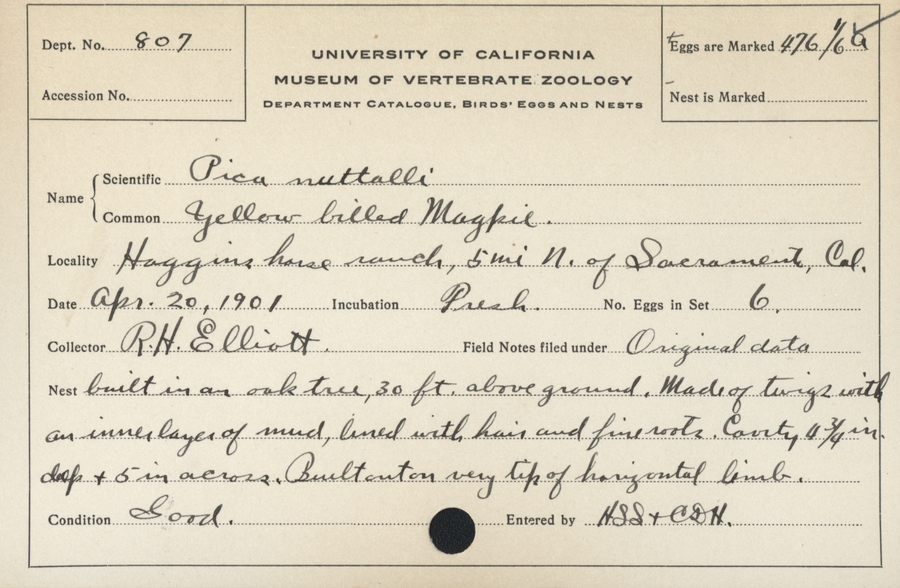 Dept. No. 807
UNIVERSITY OF CALIFORNIA
MUSEUM OF VERTEBRATE ZOOLOGY
DEPARTMENT CATALOGUE, BIRDS' EGGS AND NESTS
Accession No.
Eggs are Marked 476 1/6 a
Nest is Marked
Name
Scientific Pica nuttalli
Common Yellow billed Magpie.
Locality Haggins horse ranch, 5 mi N. of Sacrament, Cal.
Date Apr. 20, 1901 Incubation Fresh. No. Eggs in Set 6.
Collector R.H. Elliott. Field Notes filed under Original data
Nest built in an oak tree, 30 ft. above ground. Made of twigs with
an inner layer of mud, lined with hair and fine roots. Cavity 4 3/4 in.
deep + 5 in across. Built out on very tip of horizontal limb.
Condition Good. Entered by HSS + CDH.